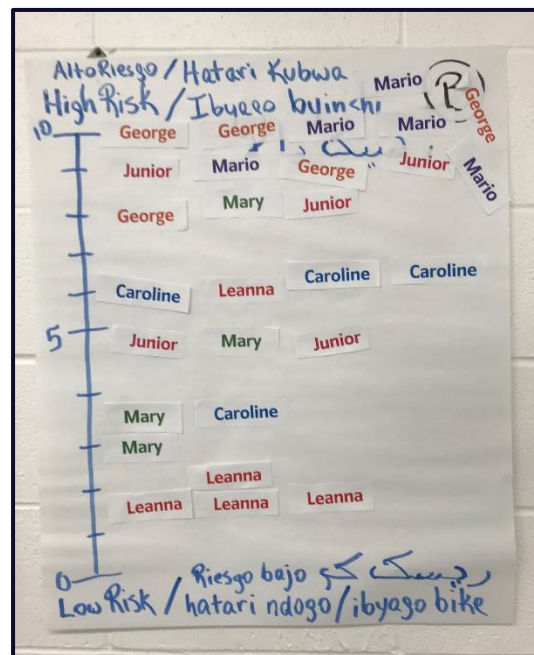 Alto Riesgo / Hatari Kubwa Mario R
High Risk / Ibyago buinshi George
10 George George Mario Mario
Junior Mario George Junior Mario
George Mary Junior
Caroline Leanna Caroline Caroline
5 Junior Mary Junior
Mary Caroline
Mary
Leanna
Leanna Leanna Leanna
0 Riesgo bajo ریسک کم
Low Risk / hatari ndogo / ibyago bike